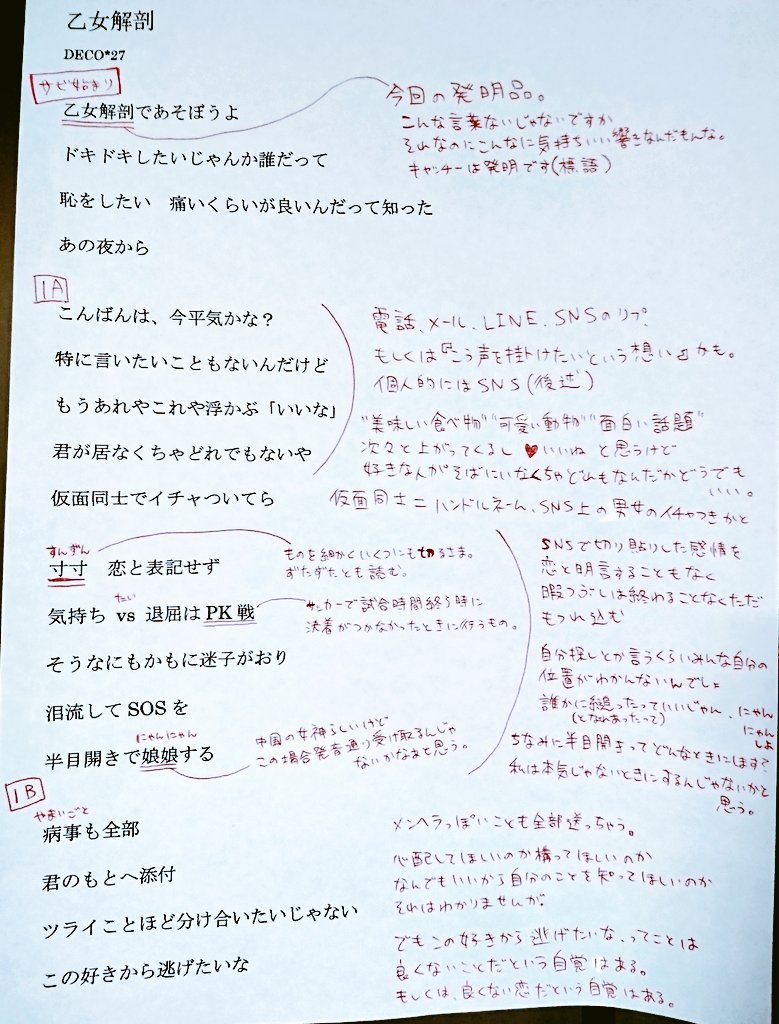 乙女解剖
DECO*27
サビ始まり
乙女解剖であそぼうよ
今回の発明品。
こんな言葉ないじゃないですか
それなのにこんなに気持ちいい響きなんだもんな。
キャッチーは発明です(標語)
ドキドキしたいじゃんか誰だって
恥をしたい 痛いくらいが良いんだって知った
あの夜から
1A
こんばんは、今平気かな？
特に言いたいこともないんだけど
もうあれやこれや浮かぶ「いいな」
君が居なくちゃどれでもないや
電話、メール、LINE、SNSのリプ、
もしくは『こう声を掛けたいという想い』かも。
個人的にはSNS(後述)
"美味しい食べ物""可愛い動物""面白い話題"
次々と上がってくるし♥いいねと思うけど
好きな人がそばにいなくちゃどれもなんだかどうでも
いい。
仮面同士でイチャついてら
仮面同士=ハンドルネーム、SNS上の男女のイチャつきかと
すんずん
寸寸 恋と表記せず
ものを細かくいくつにも切るさま。
ずたずたとも読む。
たい
気持ち vs 退屈は PK 戦
サッカーで試合時間終了時に
決着がつかなかったときに行うもの。
そうなにもかもに迷子がおり
泪流して SOS を
にゃんにゃん
半目開きで娘娘する
中国の女神らしいけど
この場合発音通り受け取るんじゃ
ないかなぁと思う。
SNSで切り貼りした感情を
恋と明言することもなく
暇つぶしは終わることなくただ
もつれ込む
自分探しとか言うくらいみんな自分の
位置がわかんないんでしょ
誰かに縋ったっていいじゃん、にゃん
(となれあったって)
にゃん
しよ
ちなみに半目開きってどんなときにします?
私は本気じゃないときにするんじゃないかと
思う。
1B
やまいごと
病事も全部
君のもとへ添付
ツライことほど分け合いたいじゃない
この好きから逃げたいな
メンヘラっぽいことも全部送っちゃう。
心配してほしいのか構ってほしいのか
なんでもいいから自分のことを知ってほしいのか
それはわかりませんが。
でもこの好きから逃げたいな、ってことは
良くないことだという自覚はある。
もしくは、良くない恋だという自覚はある。